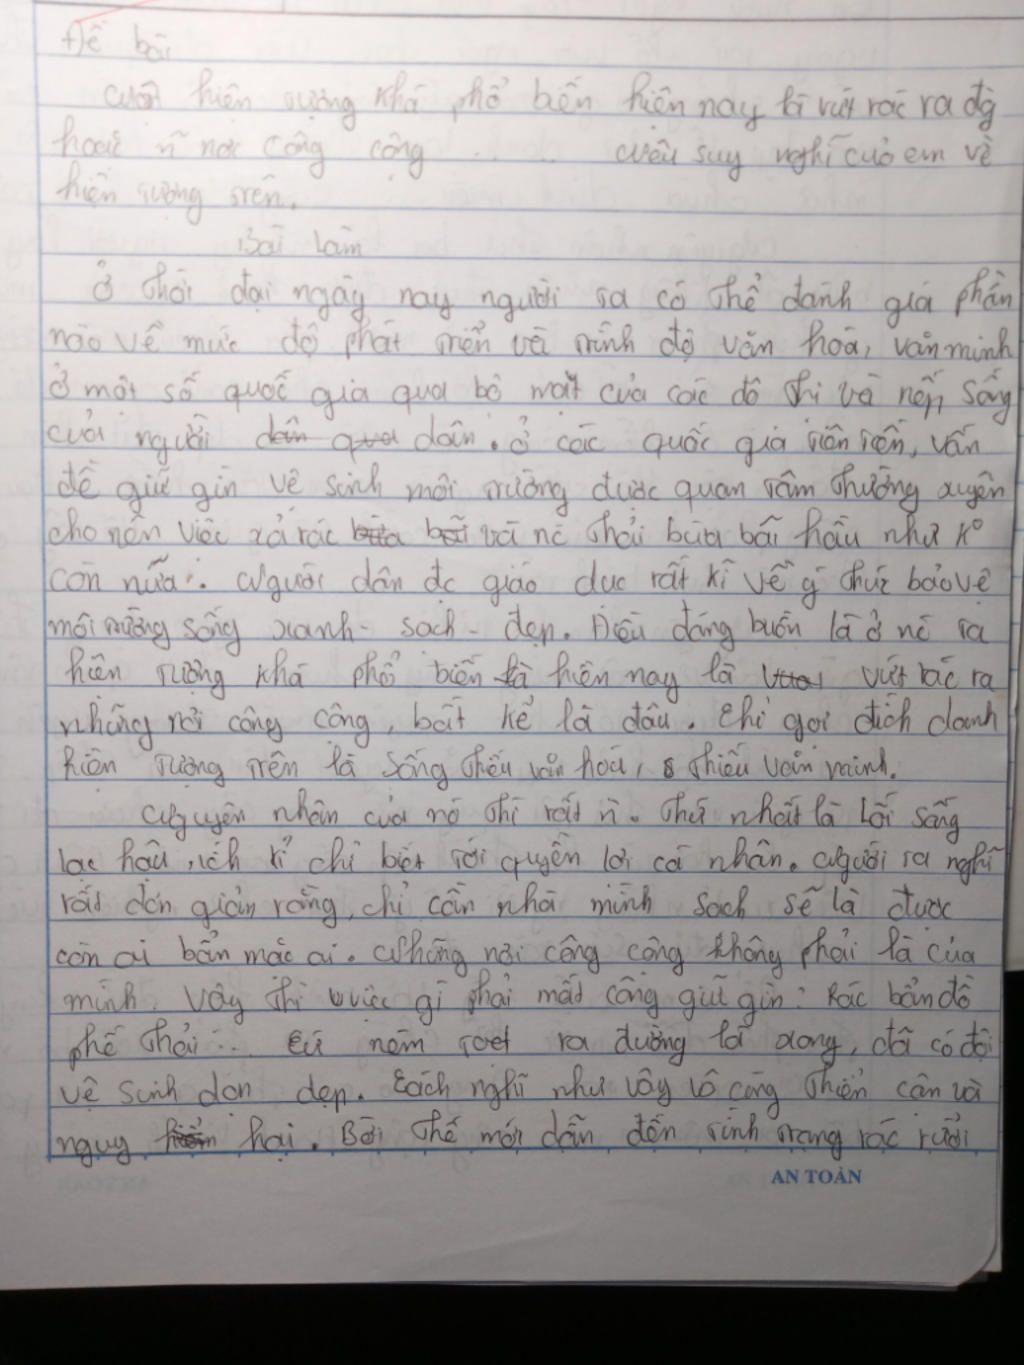 Đề bài
Một hiện tượng khá phổ biến hiện nay là vứt rác ra đg
hoặc ~ nơi công cộng ...... Nêu suy nghĩ của em về
hiện tượng trên.
Bài làm
Ở thời đại ngày nay người ta có thể đánh giá phần
nào về mức độ phát triển và trình độ văn hóa, văn minh
ở một số quốc gia qua bộ mặt của các đô thị và nếp sống
của người dân qua dân. ở các quốc gia tiên tiến, vấn
đề giữ gìn vệ sinh môi trường được quan tâm thường xuyên
cho nên việc xả rác bừa và nc thải bừa bãi hầu như ko
còn nữa.. Người dân đc giáo dục rất kĩ về ý thức bảo vệ
môi trường sống xanh - sạch - đẹp. Điều đáng buồn là ở nc ta
hiện tượng khá phổ biến là hiện nay là vứt rác ra
những nơi công cộng, bất kể là đâu. Chỉ gọi đích danh
hiện tượng trên là sống thiếu văn hóa, thiếu văn minh.
Nguyên nhân của nó thì rất ~. Thứ nhất là lối sống
lạc hậu, ích kỉ chỉ biết tới quyền lợi cá nhân. Người ta nghĩ
rất đơn giản rằng, chỉ cần nhà mình sạch sẽ là được
còn ai bẩn mặc ai. Những nơi công cộng không phải là của
mình. Vậy thì việc gì phải mất công giữ gìn: Rác bẩn đồ
phế thải ... Cứ ném toẹt ra đường là xong, đã có đội
vệ sinh dọn dẹp. Cách nghĩ như vậy vô cùng thiển cận và
nguy hiểm hại. Bởi thế mới dẫn đến tình trạng rác rưởi
AN TOÀN